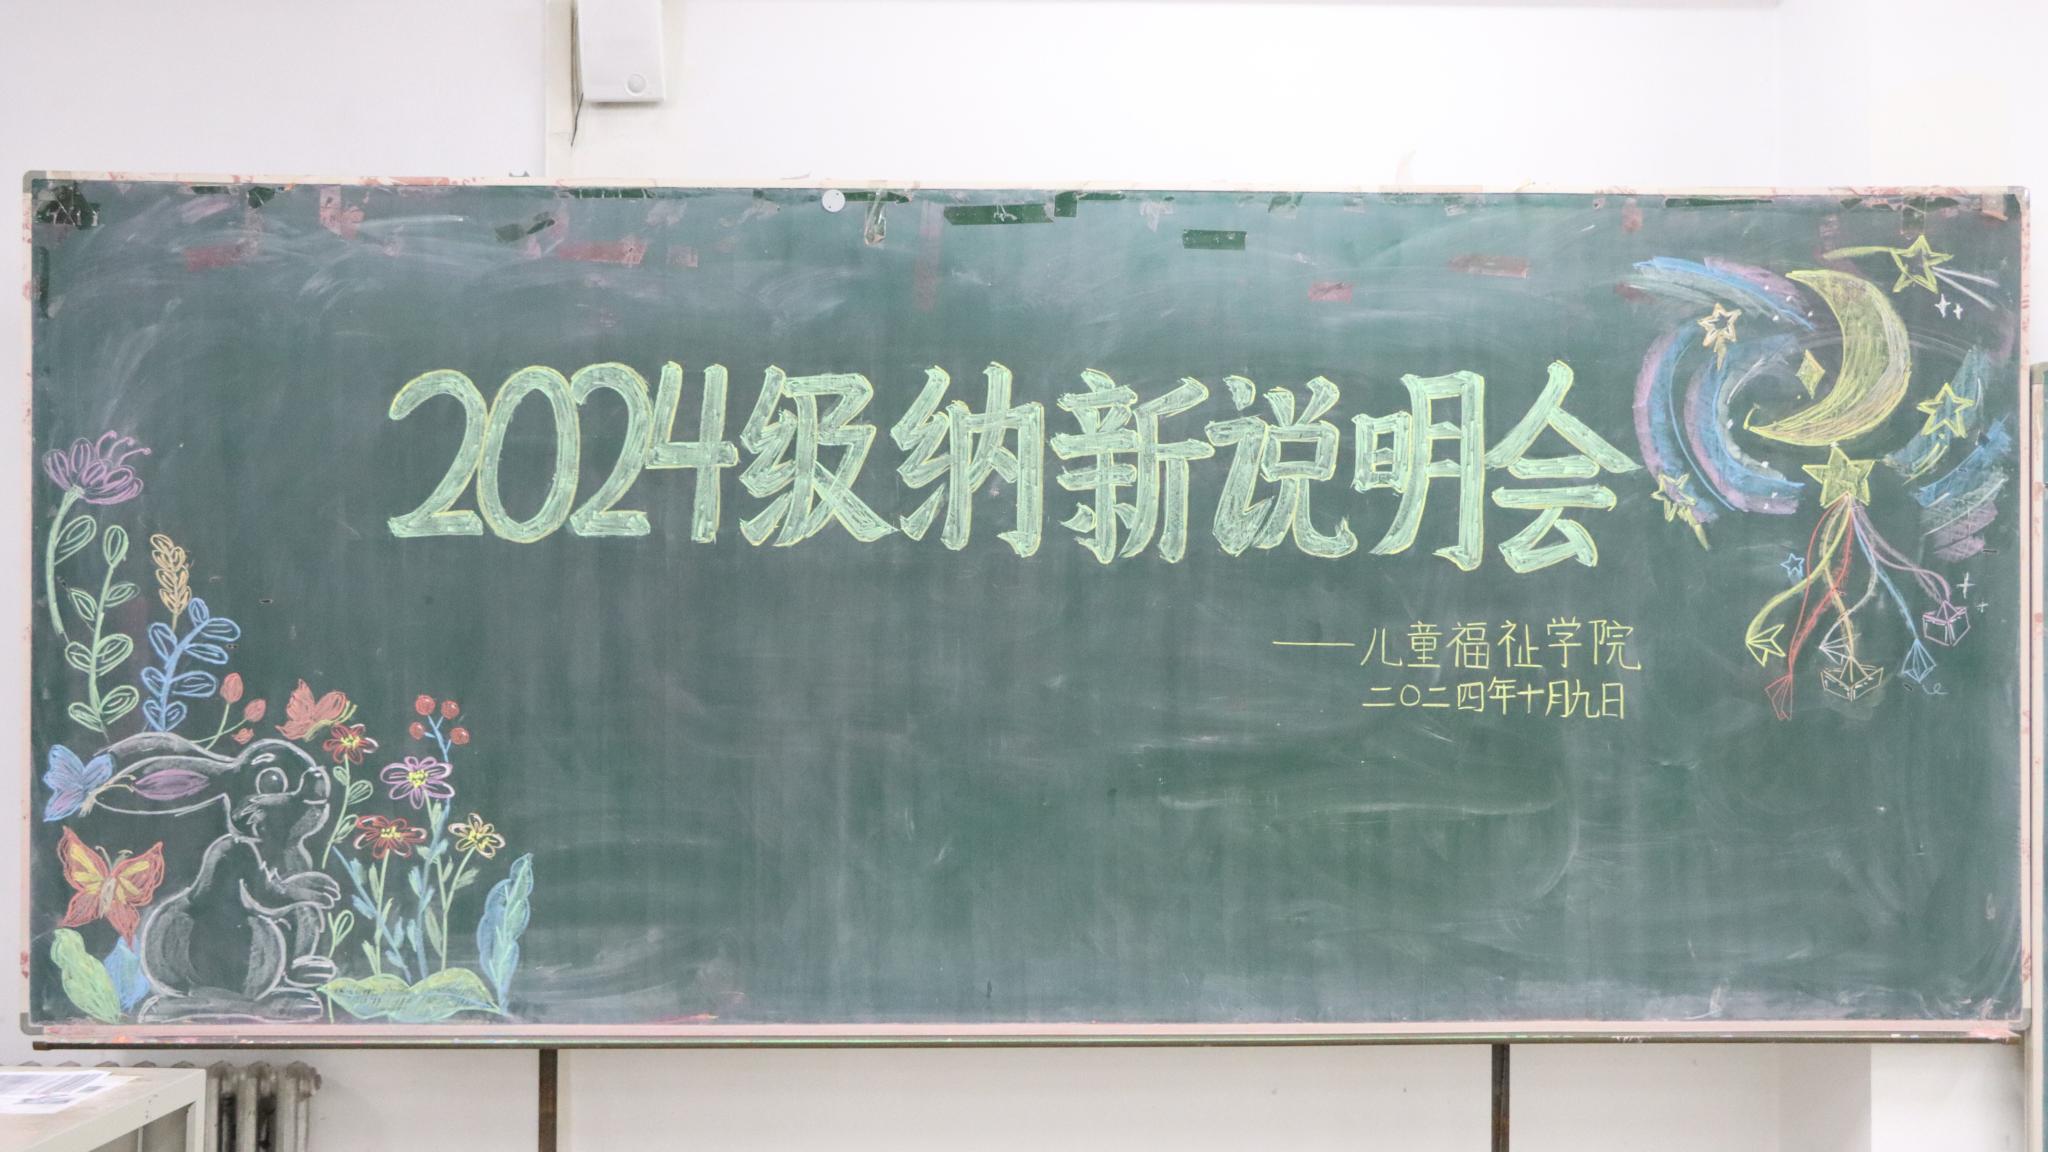 2024级纳新说明会
——儿童福祉学院
二〇二四年十月九日